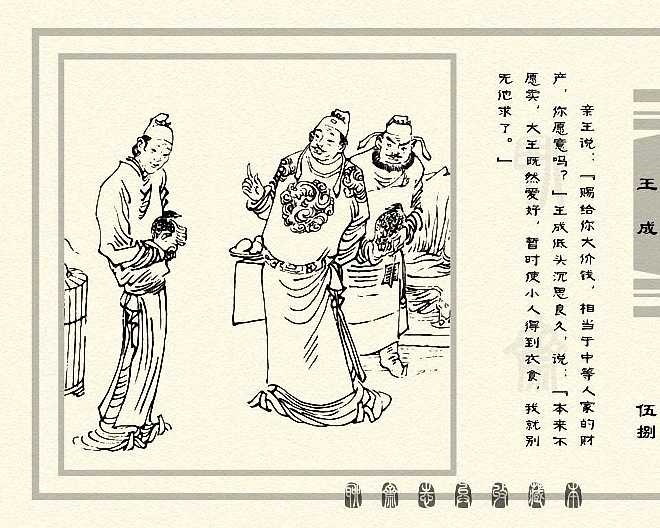 王成
伍捌
亲王说：「赐给你大价钱，相当于中等人家的财
产，你愿意吗？」王成低头沉思良久，说：「本来不
愿卖，大王既然爱好，暂时使小人得到衣食，我就别
无他求了。」
聊斋志异收藏本